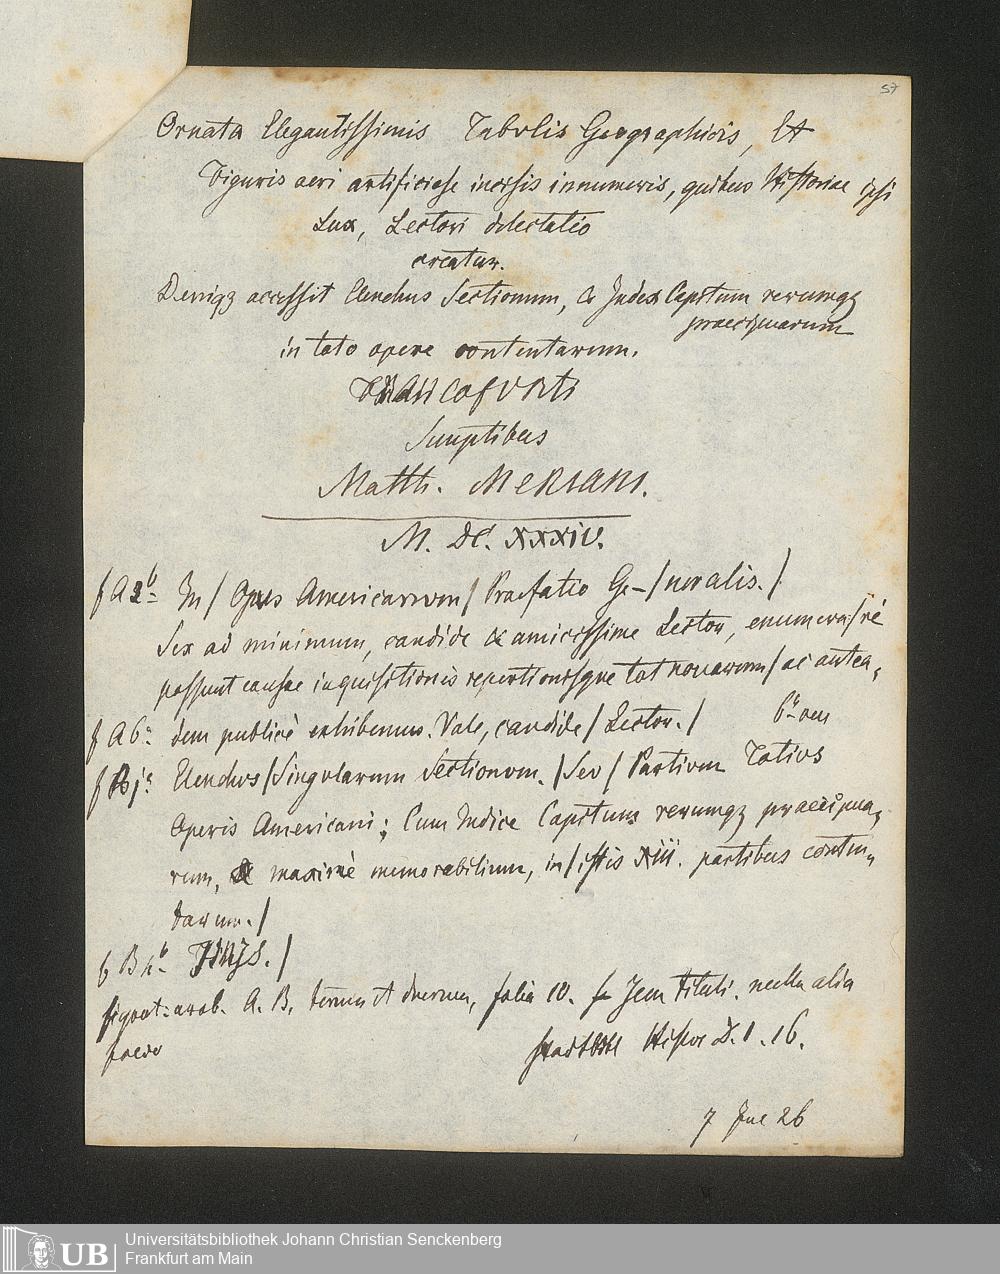 57
Ornata Elegantissimis Tabulis Geographicis, Et
Figuris aeri artificiose incisis innumeris, quibus Historiae ipsi
Lux, Lectori delectatio
creatur.
Deniqz accessit Elenchus Sectionum, & Index Capitum rerumqz
praecipuarum
in toto opere contentarum.
FRANCOFURTI
Sumptibus
Matth. MERIANI.
M. DC. XXXIV.
f A 2b In / Opus Americanum / Praefatio Ge- / neralis. /
Sex ad minimum, candide & amicissime Lector, enumera / ri
possunt causae inquisitionis repertionisque tot novarum / ac antea,
f A 6a dem publicè exhibemus. Vale, candide / Lector. /
f Bja Elenchus / Singularum Sectionum. / Seu / Partium Totius
Operis Americani; Cum Indice Capitum rerumqz praecipua,
rum, & maximè memorabilium, in / istis XIII. partibus conten,
tarum. /
b FINIS. /
A. B, folia 10. Item tituli. nulla alia
7 Jul 26
Universitätsbibliothek Johann Christian Senckenberg
UB Frankfurt am Main